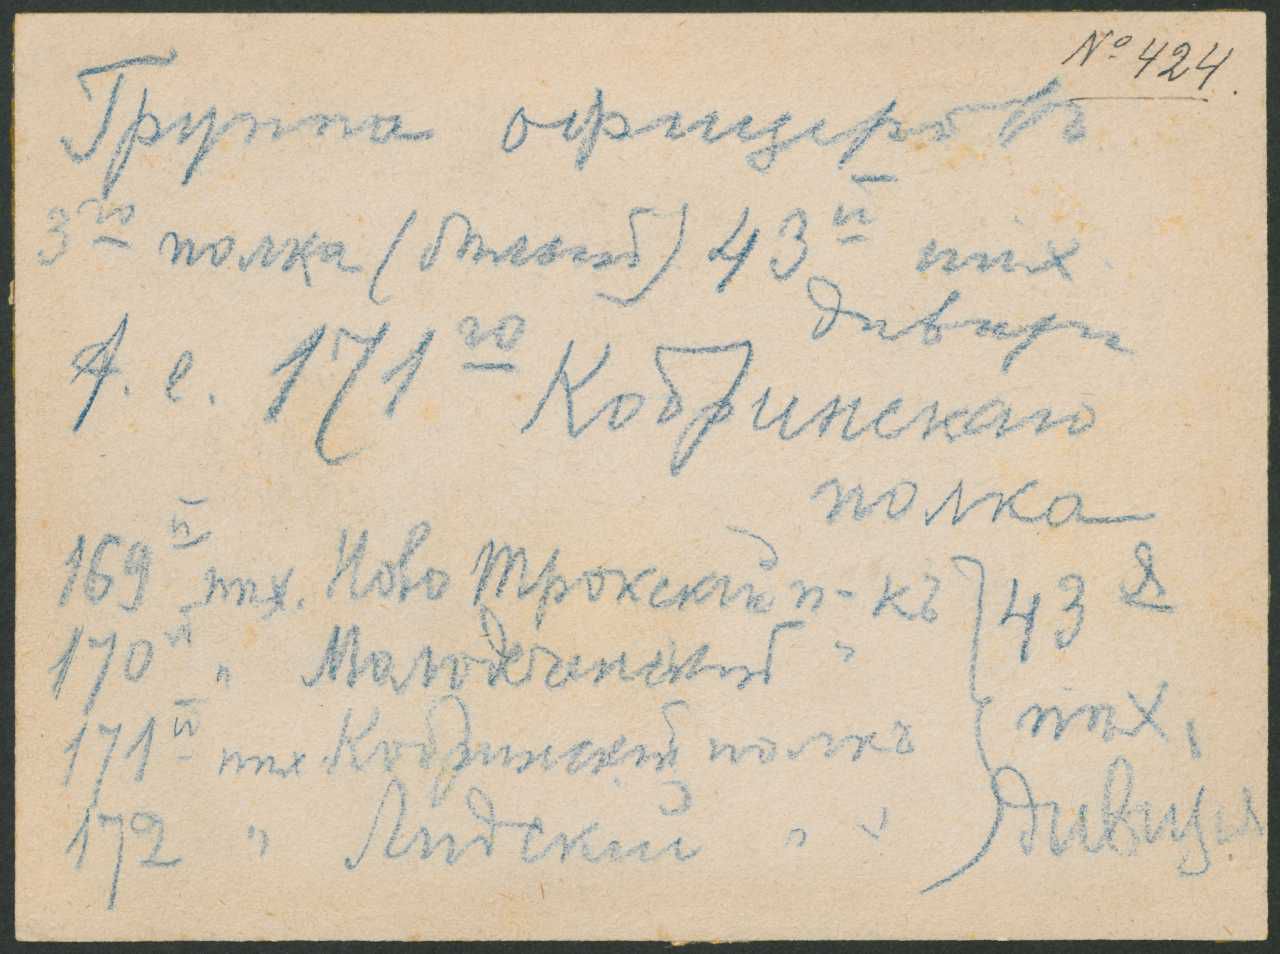 № 424.
Группа офицеровъ
3го полка (бѣлый) 43й пѣх
дивизи
т. е. 171го Кобринскаго
полка
169й пѣх. Ново Трокскій п-къ
170й „ Молодечинскій „
171й пѣх Кобринскій полкъ
172 „ Лидскій „
43я
пѣх.
Дивизія